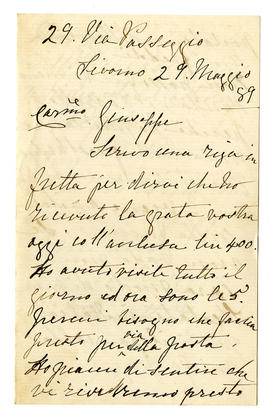 29. Via Passeggio
Livorno 29. Maggio
89
Carmo Giuseppe
Scrivo una riga in
fretta per dirvi che ho
ricevuto la grata vostra
oggi coll'acclusa lir 400.
Ho avuto visite tutto il
giorno ed ora sono le 5.
bisogno che faccia
presto per via della posta.
Ho piacere di sentire che
vi rivedremo presto